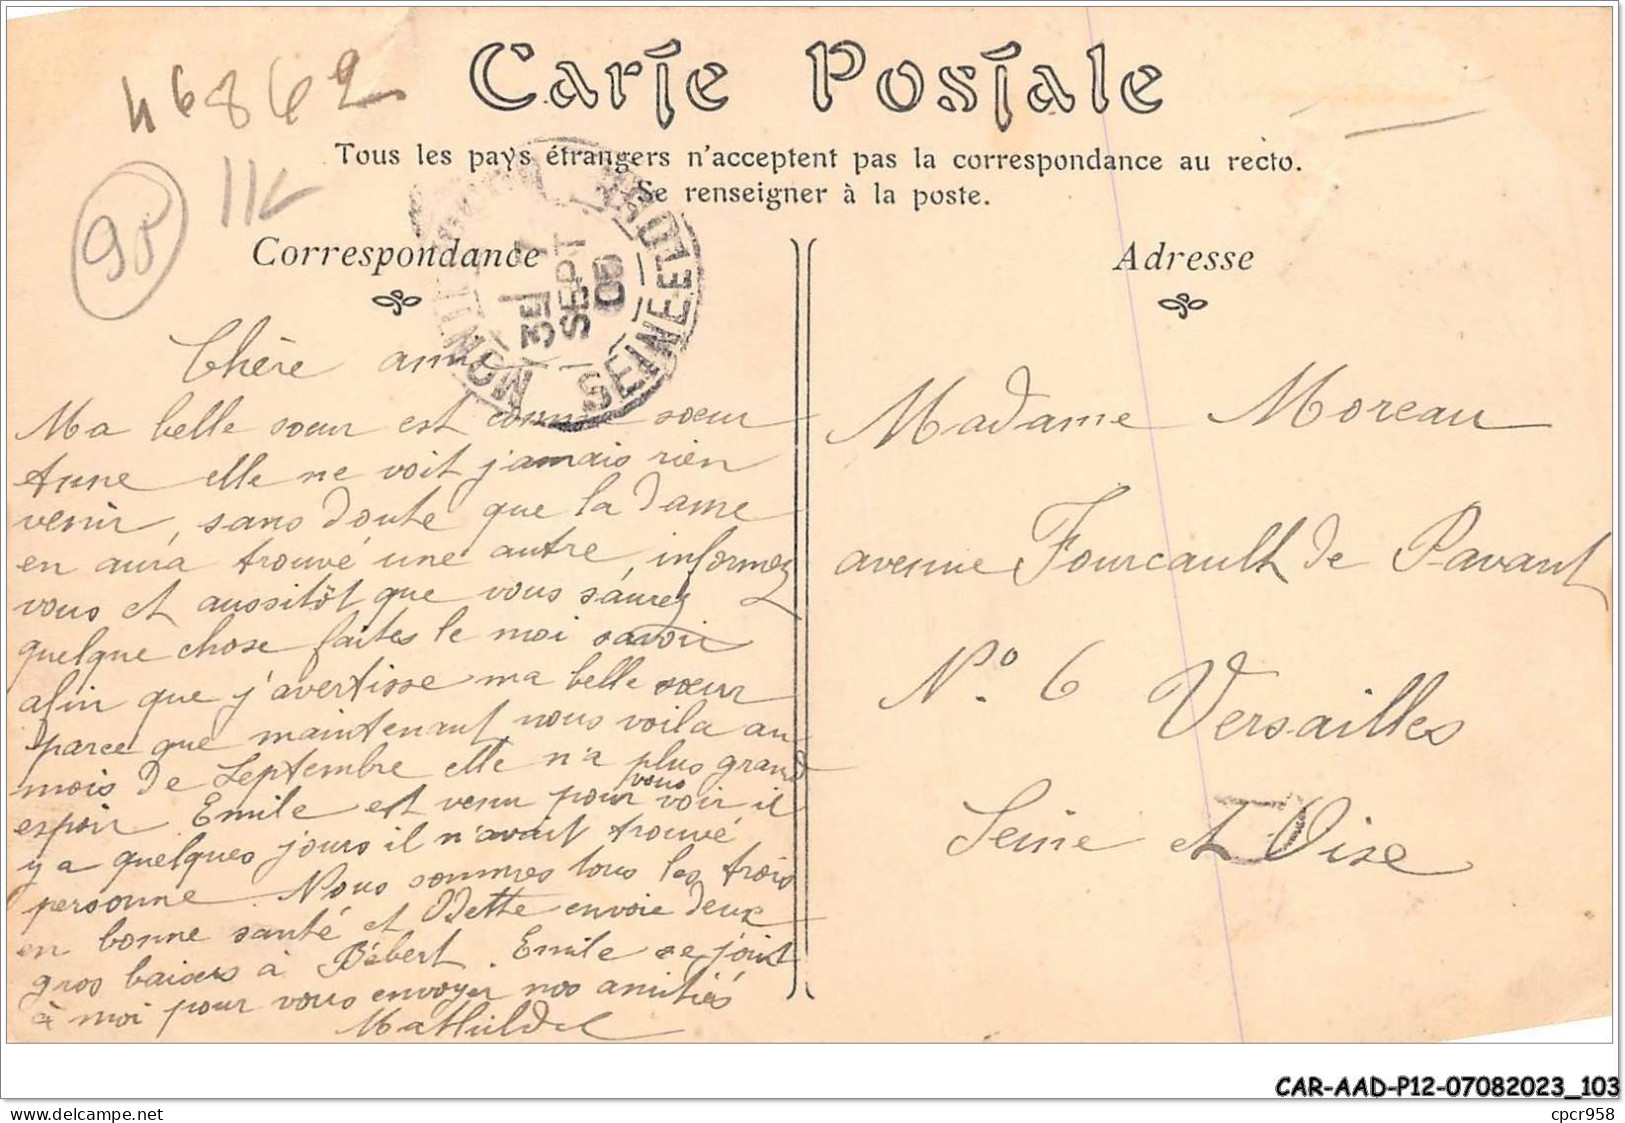 46862
Carte Postale
Tous les pays étrangers n'acceptent pas la correspondance au recto.
Se renseigner à la poste.
95
Correspondance
Chère amie
Ma belle sœur est comme sœur
Anne elle ne voit jamais rien
venir, sans doute que la dame
en aura trouvé une autre, informez
vous et aussitôt que vous saurez
quelque chose faites le moi savoir
afin que j'avertisse ma belle sœur
parce que maintenant nous voila au
mois de Septembre elle n'a plus grand
espoir. Emile est venu pour vous voir il
y a quelques jours il n'avait trouvé
personne. Nous sommes tous les trois
en bonne santé et Odette envoie deux
gros baisers à Bébert. Emile se joint
à moi pour vous envoyer nos amitiés
Mathilde
Adresse
Madame Moreau
avenue Fourcault de Pavant
No. 6 Versailles
Seine et Oise
SEPT
09
SEINE ET
CAR-AAD-P12-07082023_103
cpcr958